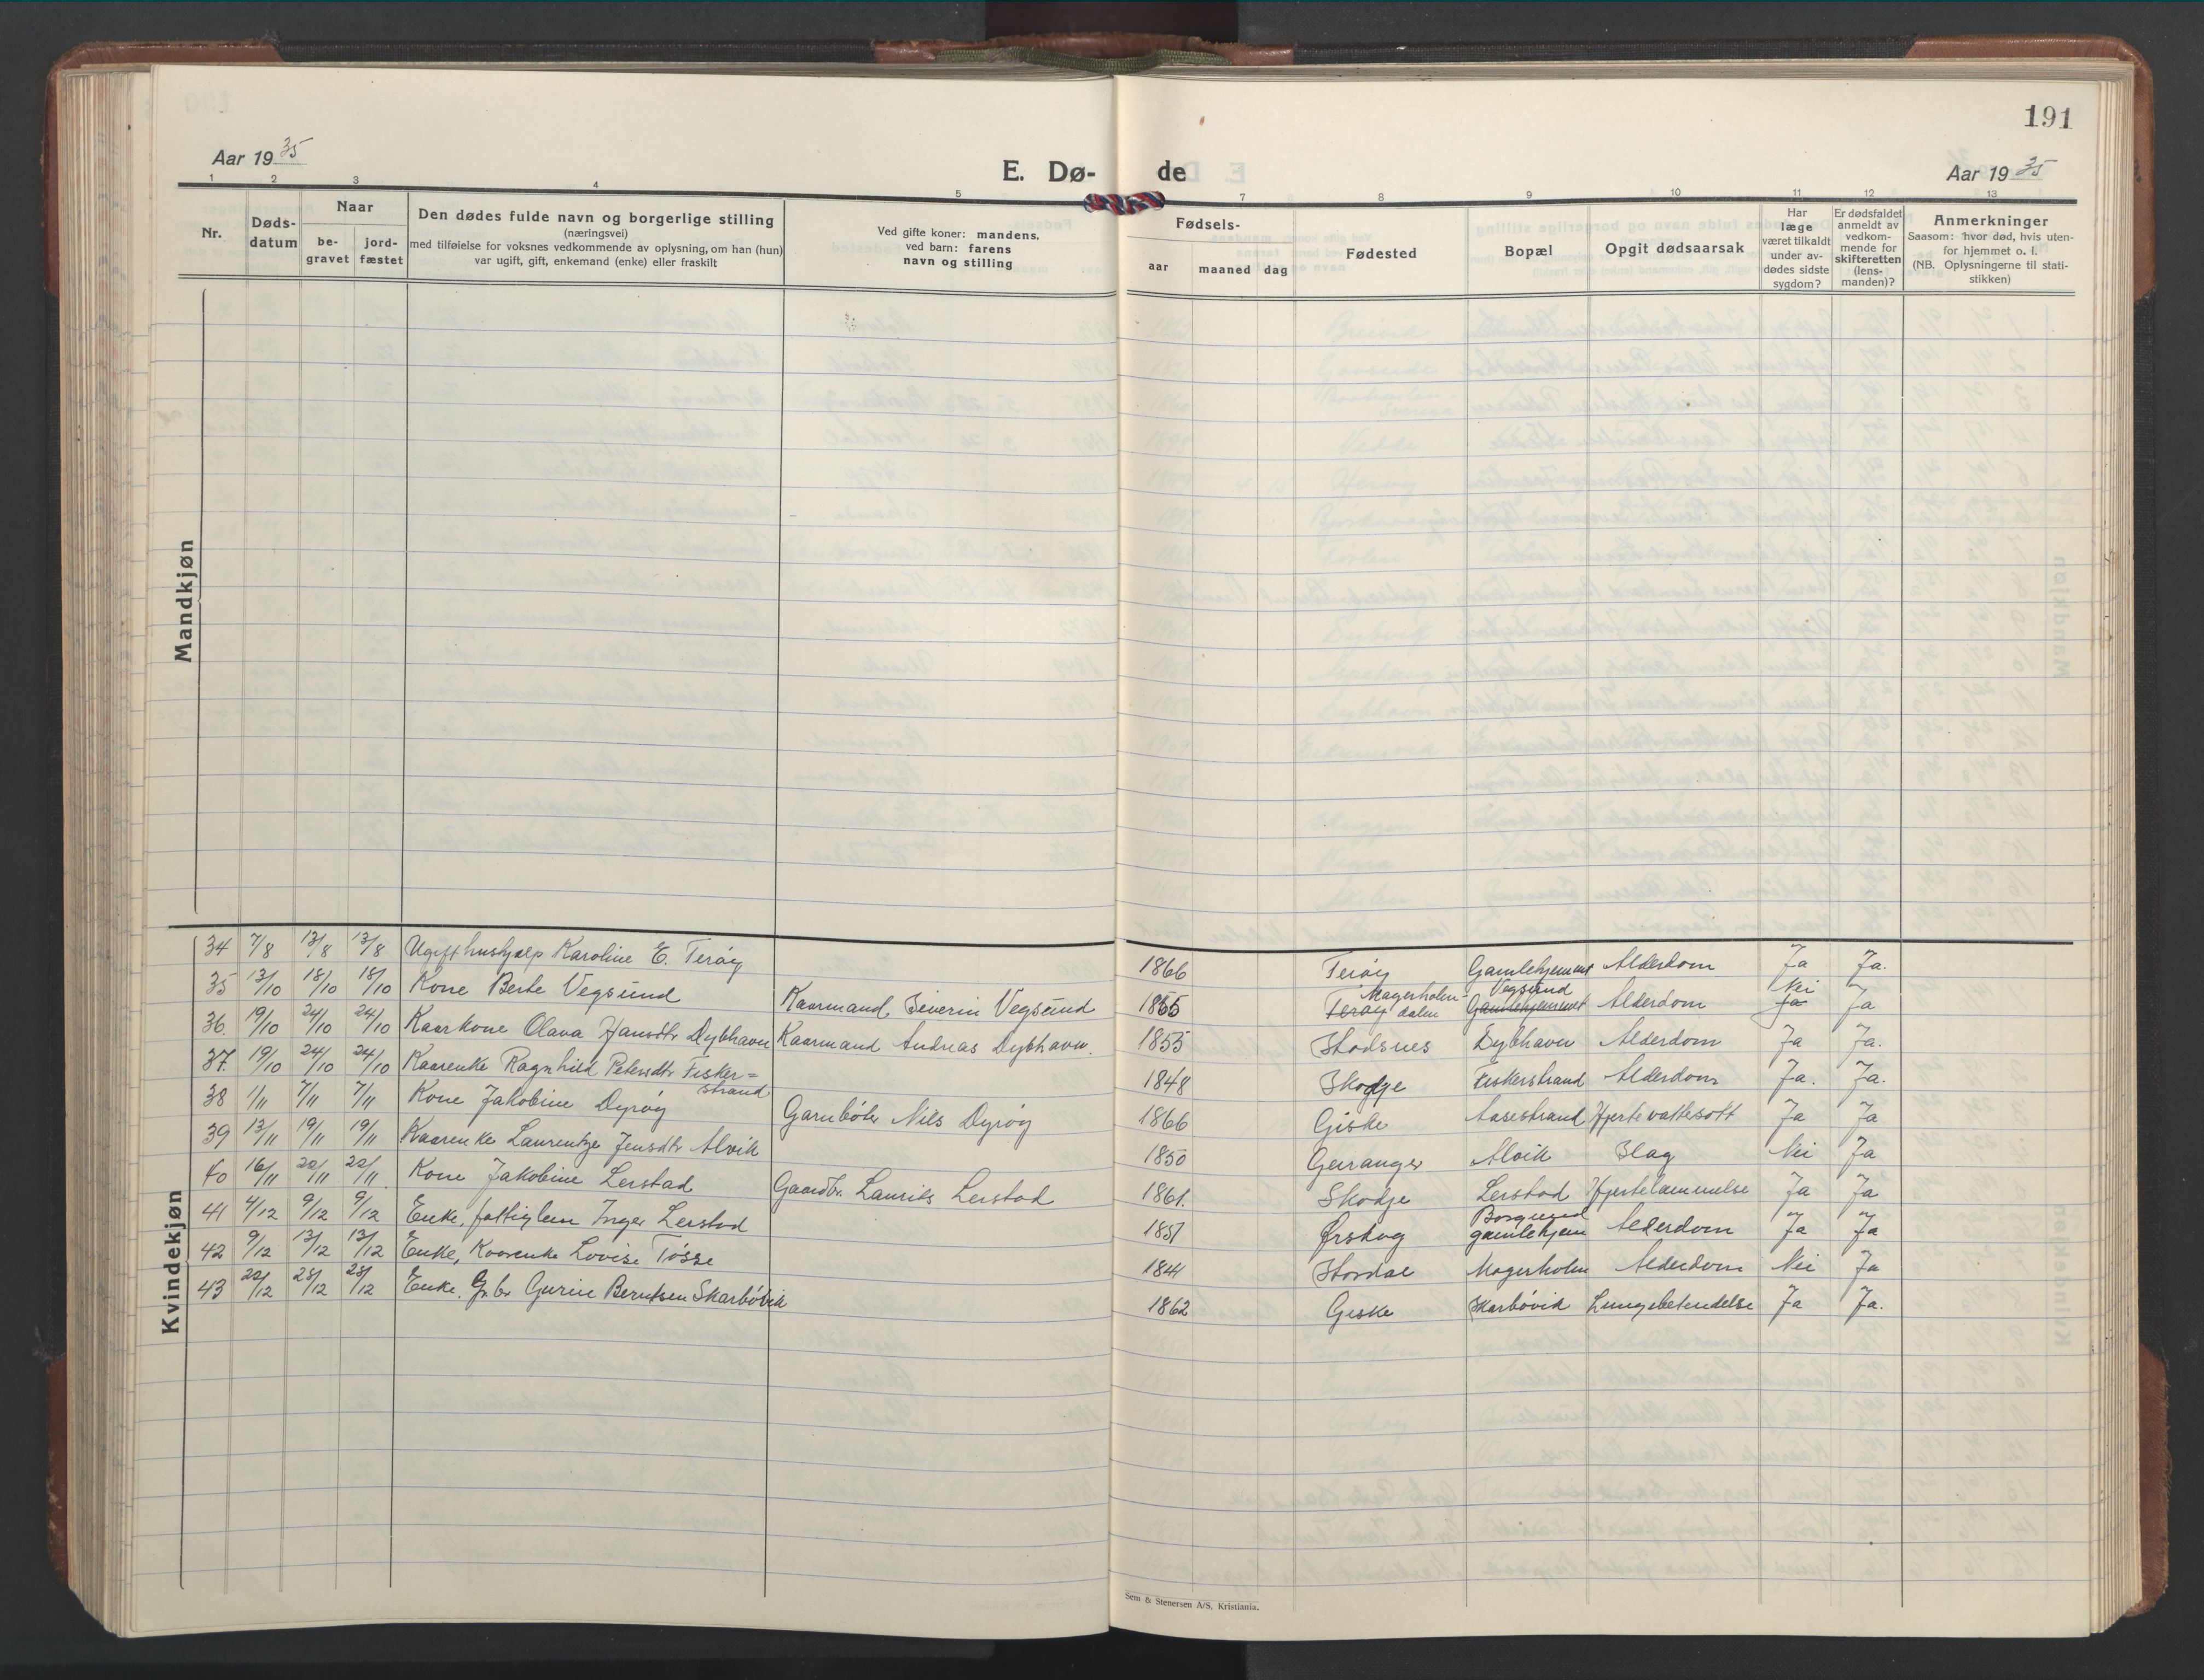 191
Aar 1935
E. Dø- de
Aar 1935
1 2 3 4 5 7 8 9 10 11 12 13
Nr.
Døds-
datum
Naar
be-
gravet
jord-
fæstet
Den dødes fulde navn og borgerlige stilling
(næringsvei)
med tilføielse for voksnes vedkommende av oplysning, om han (hun)
var ugift, gift, enkemand (enke) eller fraskilt
Ved gifte koner: mandens,
ved barn: farens
navn og stilling
Fødsels-
aar maaned dag
Fødested
Bopæl
Opgit dødsaarsak
Har
læge
været tilkaldt
under av-
dødes sidste
sygdom?
Er dødsfaldet
anmeldt av
vedkom-
mende for
skifteretten
(lens-
manden)?
Anmerkninger
Saasom: hvor død, hvis uten-
for hjemmet o. l.
(NB. Oplysningerne til stati-
stikken)
Mandkjøn
Kvindekjøn
34 7/8 13/8 13/8 Ugift hushjælp Karoline E. Terøy 1866 Terøy Gamlehjemmet Alderdom Ja Ja.
35 13/10 18/10 18/10 Kone Berte Vegsund Kaarmand Severin Vegsund 1865 Terøy Magerholm-dalen Gamlehjemmet Vegsund Alderdom Ja Nei Ja
36. 19/10 24/10 24/10 Kaarkone Olava Hansdtr Dybhavn Kaarmand Andreas Dybhavn. 1855 Stadsnes Dybhavn Alderdom Ja Ja.
37. 19/10 24/10 24/10 Kaarenke Ragnhild Petersdtr Fisker=
strand 1848 Skodje Fiskerstrand Alderdom Ja. Ja.
38 1/11 7/11 7/11 Kone Jakobine Dyrøy Garnbøter Nils Dyrøy 1866 Giske Aasestrand Hjertevattesott Ja Ja
39 13/11 19/11 19/11 Kaarenke Laurentze Jensdtr Alvik 1850 Geiranger Alvik Slag Nei Ja
40 16/11 22/11 22/11. Kone Jakobine Lerstad Gaardbr. Laurits Lerstad 1861. Skodje Lerstad Hjertelammelse Ja Ja
41 4/12 9/12 9/12 Enke, fattiglem Inger Lerstad 1851 Ørskog Borgund gamlehjem Alderdom Ja Ja
42 9/12 13/12 13/12 Enke, Kaarenke Lovise Tøsse 1844 Stordal Magerholm Alderdom Nei Ja
43 22/12 28/12 28/12 Enke. G.br Gurine Berntsen Skarbøvik 1862 Giske Skarbøvik Lungebetendelse Ja Ja.
Sem & Stenersen A/S, Kristiania.